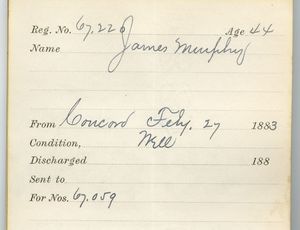 Reg. No. 67.226 Age 44
Name James Murphy
From Concord Feby. 27 1883
Condition, Well
Discharged 188
Sent to
For Nos. 67,059